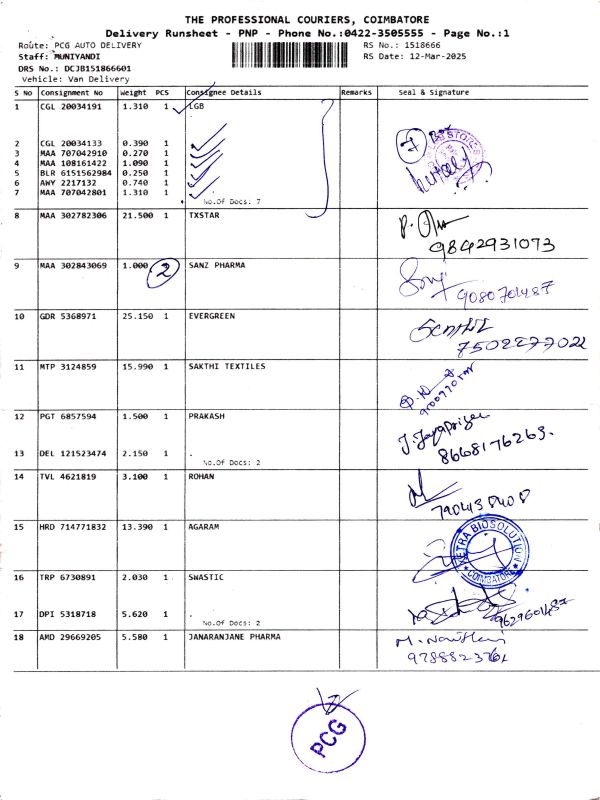 THE PROFESSIONAL COURIERS, COIMBATORE
Delivery Runsheet - PNP - Phone No.:0422-3505555 - Page No.:1
Route: PCG AUTO DELIVERY RS No.: 1518666
Staff: MUNIYANDI RS Date: 12-Mar-2025
DRS No.: DCJB151866601
Vehicle: Van Delivery
S No Consignment No Weight PCS Consignee Details Remarks Seal & Signature
1 CGL 20034191 1.310 1 LGB
2 CGL 20034133 0.390 1
3 MAA 707042910 0.270 1
4 MAA 108161422 1.090 1
5 BLR 6151562984 0.250 1
6 AWY 2217132 0.740 1
7 MAA 707042801 1.310 1 .
No.Of Docs: 7
7
8 MAA 302782306 21.500 1 TXSTAR
9842931073
9 MAA 302843069 1.000 2 SANZ PHARMA
9080701487
10 GDR 5368971 25.150 1 EVERGREEN
7502277022
11 MTP 3124859 15.990 1 SAKTHI TEXTILES
12 PGT 6857594 1.500 1 PRAKASH
J. Jayapriya
8668176263.
13 DEL 121523474 2.150 1 .
No.Of Docs: 2
14 TVL 4621819 3.100 1 ROHAN
15 HRD 714771832 13.390 1 AGARAM
BIOSOLUTION
COIMBATORE
16 TRP 6730891 2.030 1 SWASTIC
17 DPI 5318718 5.620 1 .
9629601487
No.Of Docs: 2
18 AMD 29669205 5.580 1 JANARANJANE PHARMA
9788823761
PCG